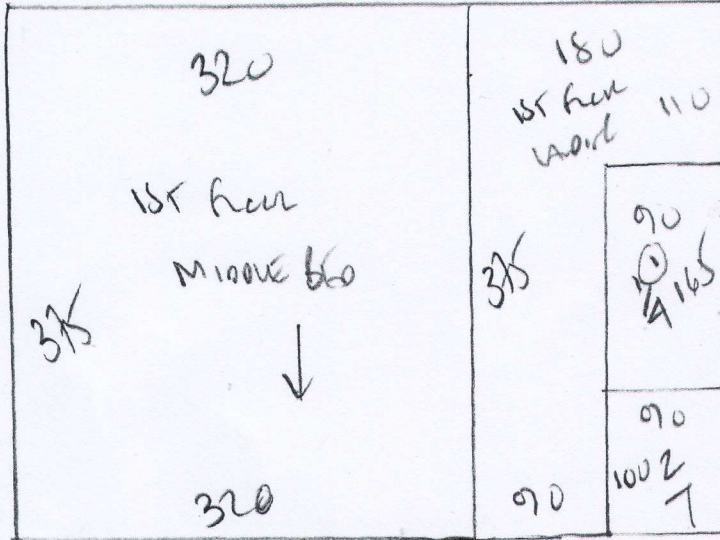 320
1ST Floor
MIDDLE BED
375
320
180
1ST Floor
110
375
90
90
165
90
100 2
7